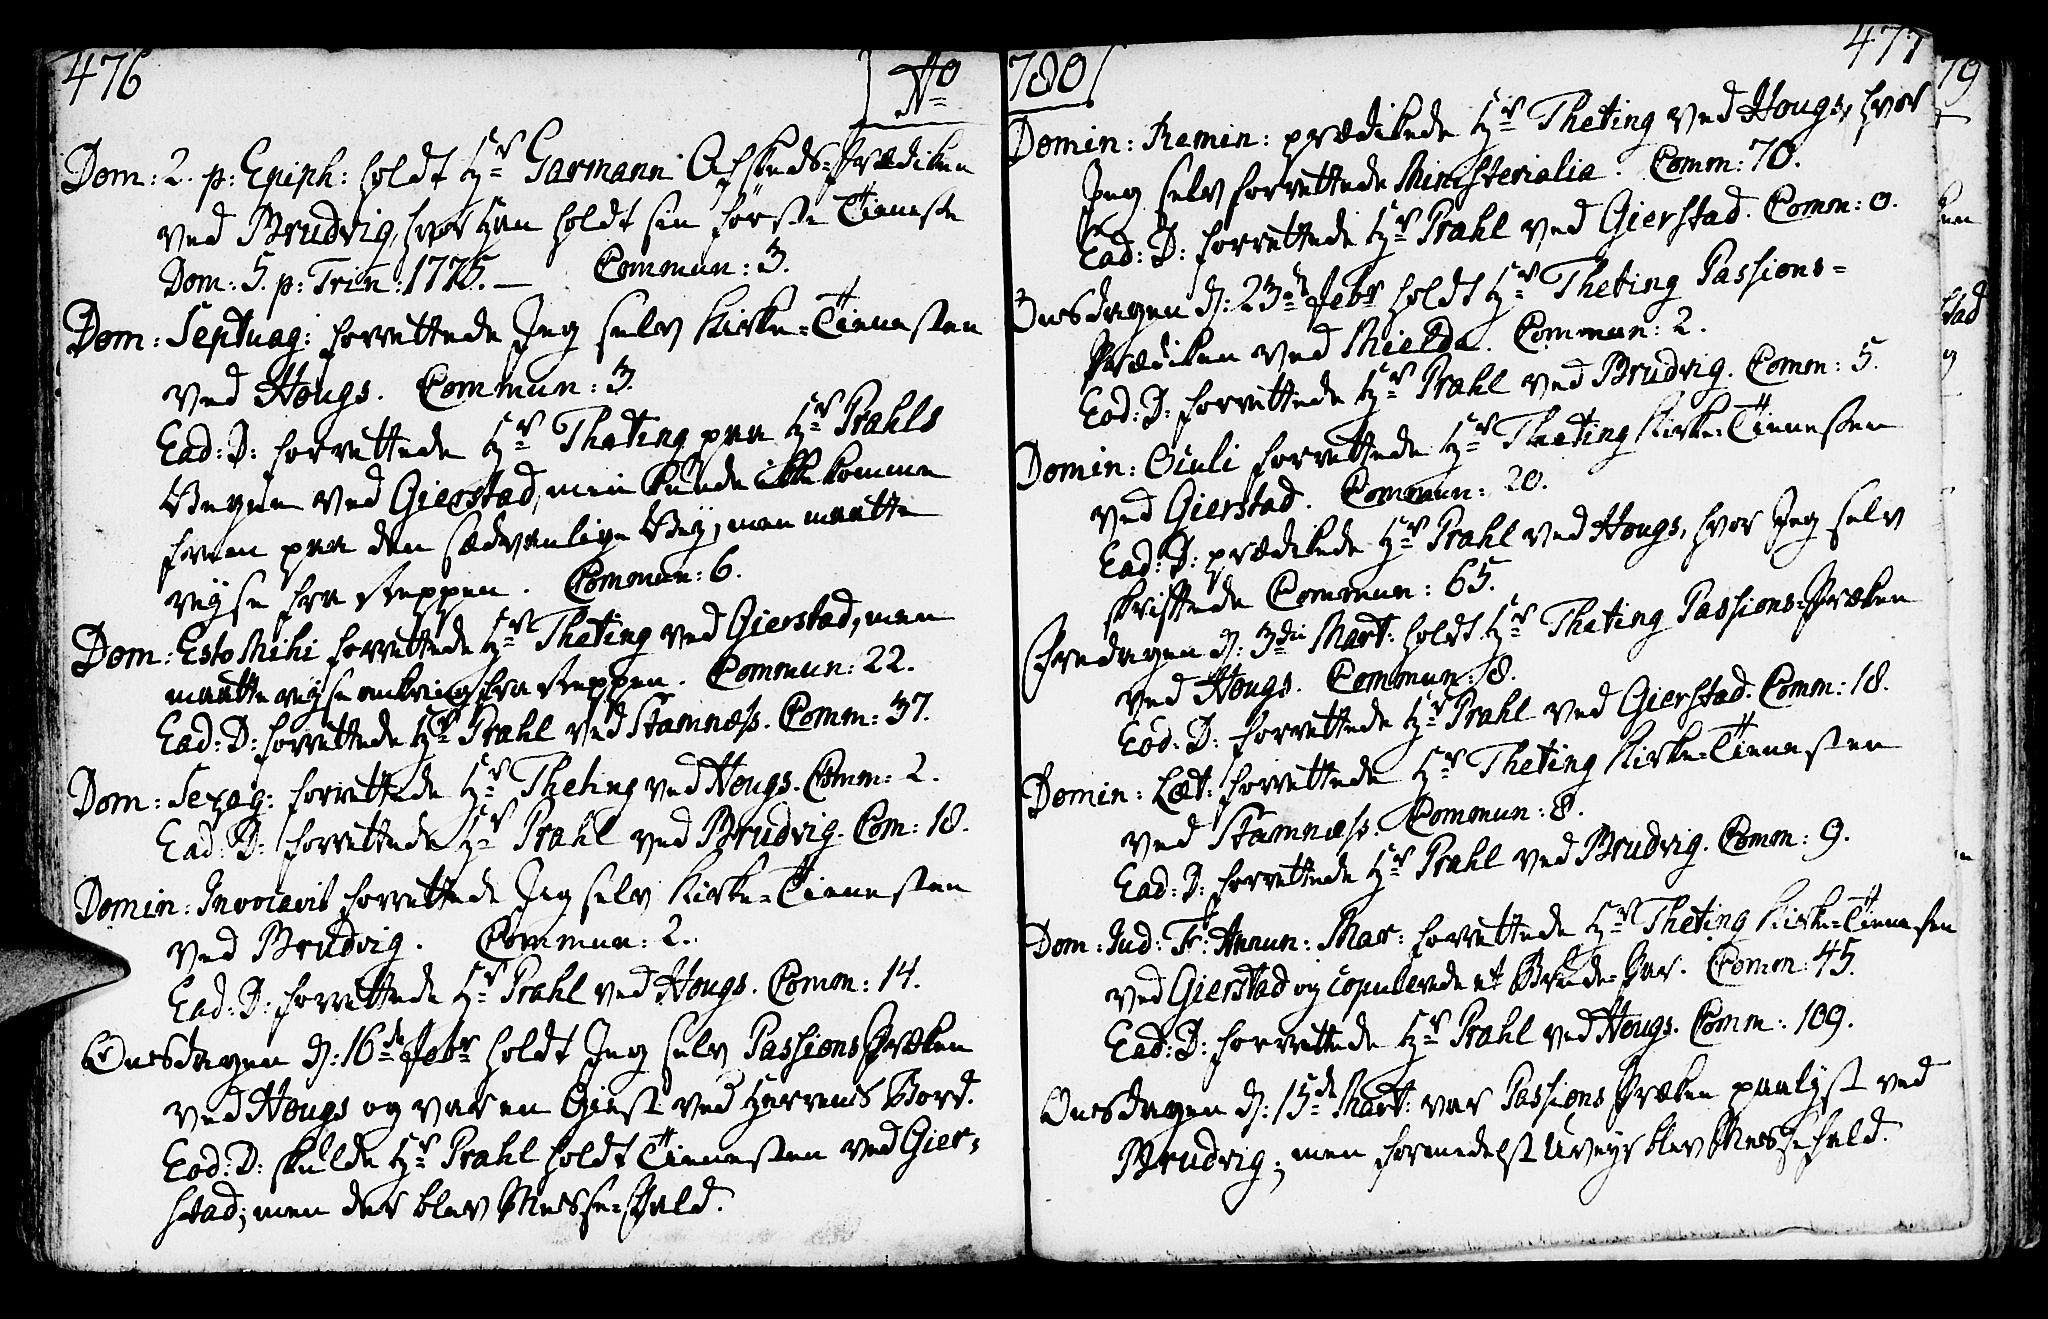 476
Ao
Dom: 2. p: Epiph: holdt Hr Garmann Afskeds-Prædiken
ved Brudvig, hvor Han holdt sin förste Tieneste
Dom: 5. p: Trin: 1775. — Commun: 3.
Dom: Septuag: forrettede Jeg selv Kirke-Tienesten
ved Hougs. Commun: 3.
Ead: D: forrettede Hr Theting paa Hr Prahls
Vegne ved Gierstad, men kunde ikke komme
frem paa den sædvanlige Vey, men maatte
reyse fra Steppen. Commun: 6.
Dom: Esto Mihi forrettede Hr Theting ved Gierstad, men
maatte reyse omkring fra Steppen. Commun: 22.
Ead: D: forrettede Hr Prahl ved Stamnæss. Comm: 37.
Dom: Sexag: forrettede Hr Theting ved Hougs. Comm: 2.
Ead: D: forrettede Hr Prahl ved Brudvig. Com: 18.
Domin: Invocavit forrettede Jeg selv Kirke-Tienesten
ved Brudvig. Commun: 2.
Ead: D: forrettede Hr Prahl ved Hougs. Comm: 14.
Onsdagen d: 16de Febr holdt Jeg selv Passions Præken
ved Hougs og var en Giest ved Herrens Bord.
Eod: D: skulde Hr Prahl holdt Tienesten ved Gier-
stad; men der blev Messe-Fald.
1780
477
Domin: Remin: prædikede Hr Theting ved Hougs, hvor
Jeg selv forrettede Ministerialia. Comm: 70.
Ead: D: forrettede Hr Prahl ved Gierstad. Comm: 0.
Onsdagen d: 23de Febr holdt Hr Theting Passions-
Prædiken ved Mielde. Commun: 2.
Eod: D: forrettede Hr Prahl ved Brudvig. Comm: 5.
Domin: Oculi forrettede Hr Theting Kirke-Tienesten
ved Gierstad. Commun: 20.
Ead: D: prædikede Hr Prahl ved Hougs, hvor Jeg selv
skriftede Commun: 65.
Fredagen d: 3die Mart: holdt Hr Theting Passions-Præken
ved Hougs. Commun: 8.
Eod: D: forrettede Hr Prahl ved Gierstad. Comm: 18.
Domin: Læt: forrettede Hr Theting Kirke-Tienesten
ved Stamnæss. Commun: 8.
Ead: D: forrettede Hr Prahl ved Brudvig. Comm: 9.
Dom: Jud: Fr: Annun: Mar: forrettede Hr Theting Kirke-Tienesten
ved Gierstad og copulerede et Brude-Par. Comm: 45.
Ead: D: forrettede Hr Prahl ved Hougs. Comm: 109.
Onsdagen d: 15de Mart: var Passions Præken paalyst ved
Brudvig; men formedelst Uveyr blev Messefald.